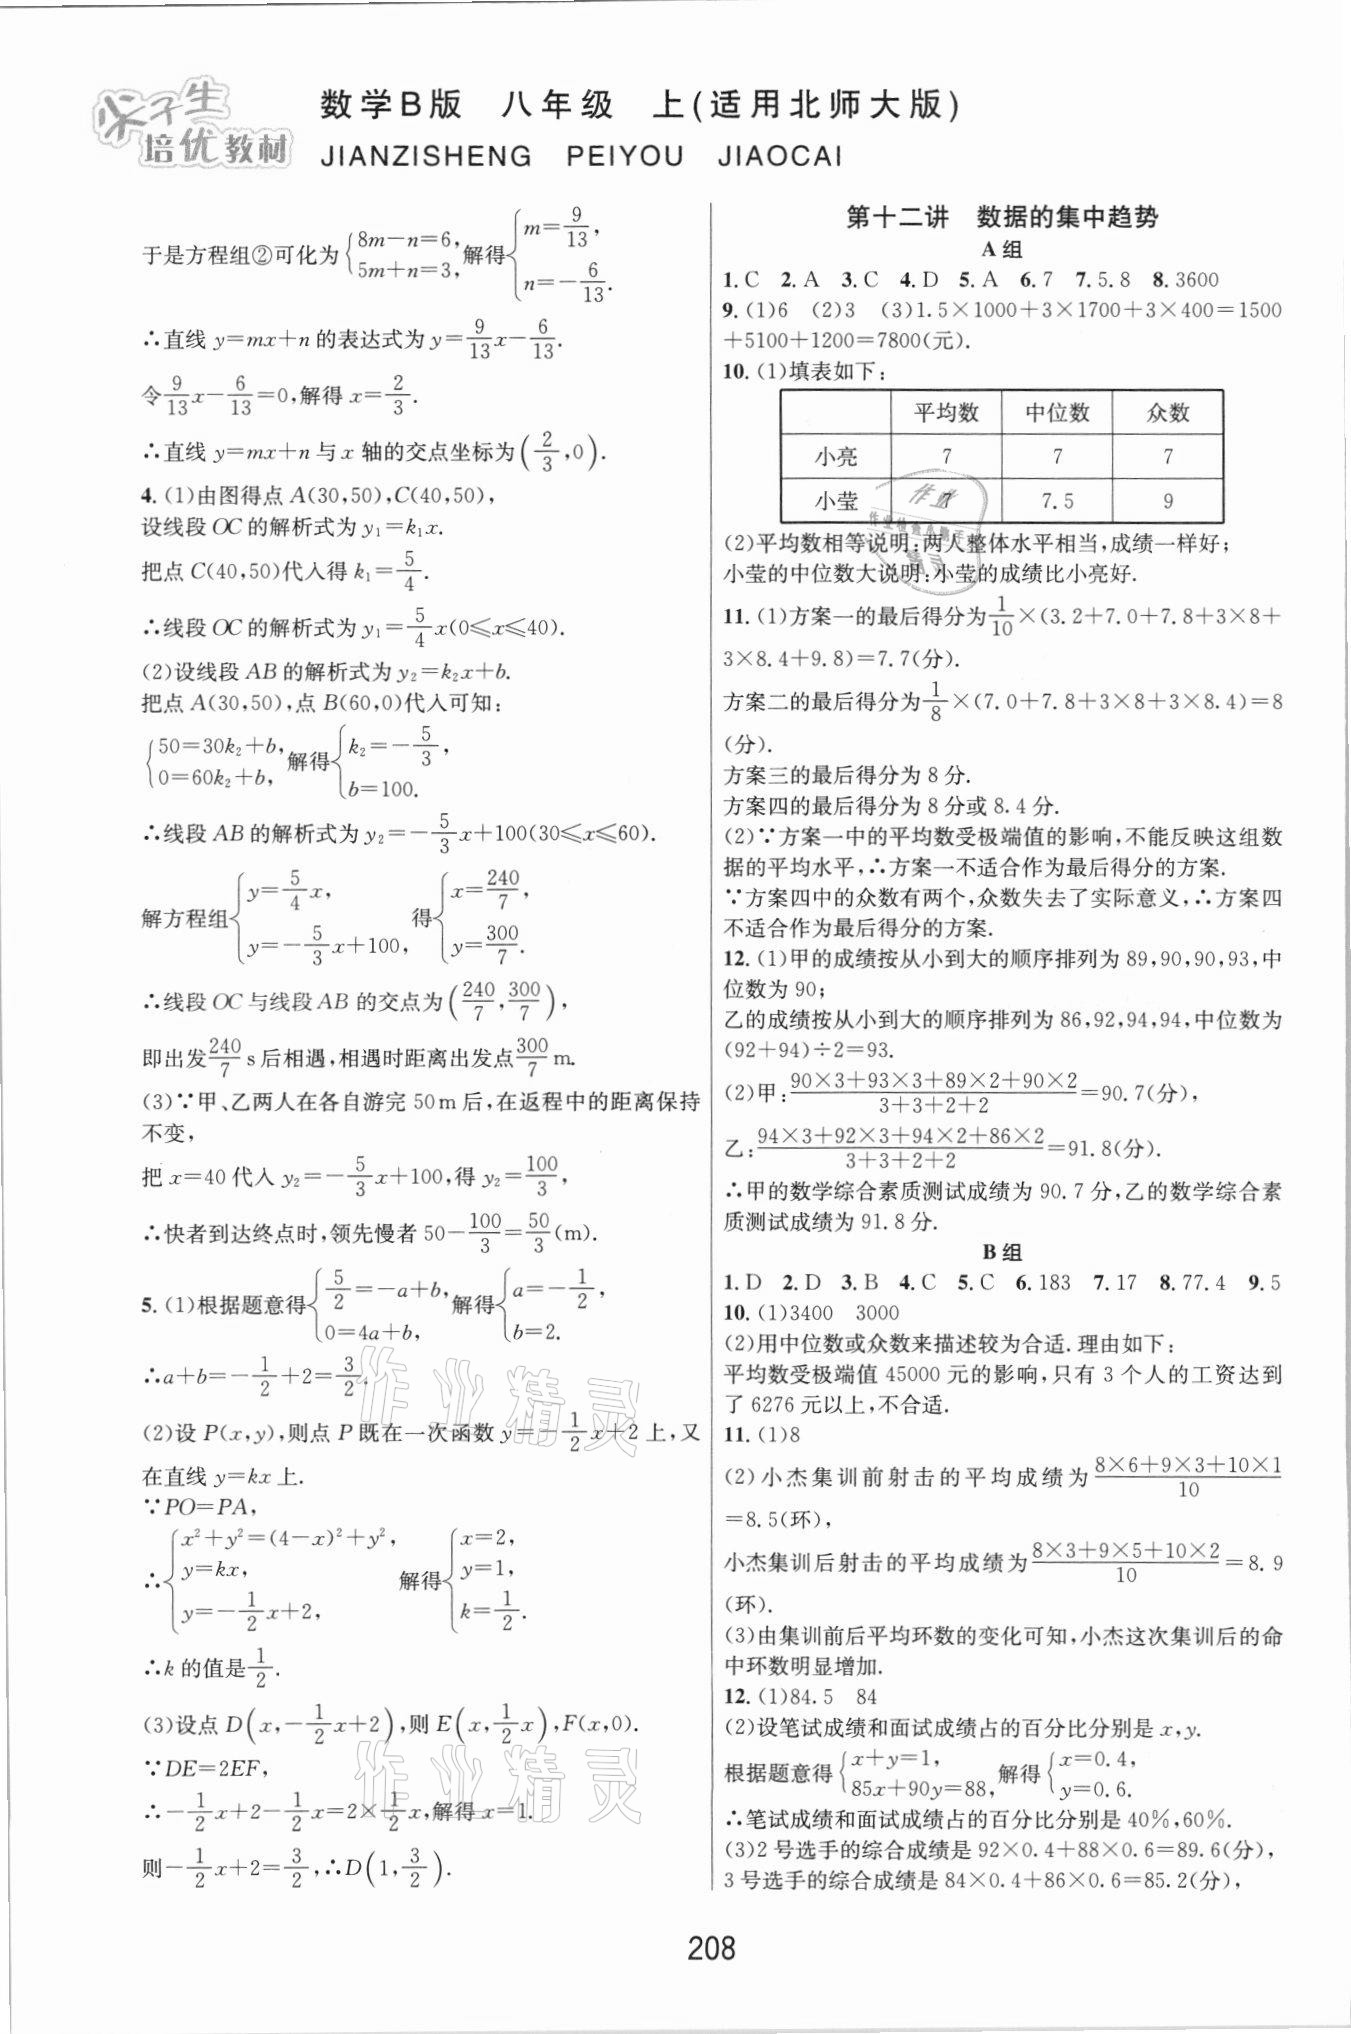 尖子生
培优教材
数学B版 八年级 上(适用北师大版)
JIANZISHENG PEIYOU JIAOCAI
于是方程组②可化为{8m-n=6, 5m+n=3, 解得{m=9/13, n=-6/13.
∴直线 y=mx+n 的表达式为 y=9/13x-6/13.
令9/13x-6/13=0,解得 x=2/3.
∴直线 y=mx+n 与 x 轴的交点坐标为(2/3,0).
4.(1)由图得点 A(30,50),C(40,50),
设线段 OC 的解析式为 y₁=k₁x.
把点 C(40,50)代入得 k₁=5/4.
∴线段 OC 的解析式为 y₁=5/4x(0⩽x⩽40).
(2)设线段 AB 的解析式为 y₂=k₂x+b.
把点 A(30,50),点 B(60,0)代入可知:
{50=30k₂+b, 0=60k₂+b, 解得{k₂=-5/3, b=100.
∴线段 AB 的解析式为 y₂=-5/3x+100(30⩽x⩽60).
解方程组{y=5/4x, y=-5/3x+100, 得{x=240/7, y=300/7.
∴线段 OC 与线段 AB 的交点为(240/7,300/7),
即出发240/7s后相遇,相遇时距离出发点300/7m.
(3)∵甲、乙两人在各自游完 50m 后,在返程中的距离保持
不变,
把 x=40 代入 y₂=-5/3x+100,得 y₂=100/3,
∴快者到达终点时,领先慢者 50-100/3=50/3(m).
5.(1)根据题意得{5/2=-a+b, 0=4a+b, 解得{a=-1/2, b=2.
∴a+b=-1/2+2=3/2.
(2)设 P(x,y),则点 P 既在一次函数 y=-1/2x+2 上,又
在直线 y=kx 上.
∵PO=PA,
∴{x²+y²=(4-x)²+y², y=kx, y=-1/2x+2, 解得{x=2, y=1, k=1/2.
∴k 的值是1/2.
(3)设点 D(x,-1/2x+2),则 E(x,1/2x),F(x,0).
∵DE=2EF,
∴-1/2x+2-1/2x=2×1/2x,解得 x=1.
则-1/2x+2=3/2,∴D(1,3/2).
第十二讲 数据的集中趋势
A 组
1.C 2.A 3.C 4.D 5.A 6.7 7.5.8 8.3600
9.(1)6 (2)3 (3)1.5×1000+3×1700+3×400=1500
+5100+1200=7800(元).
10.(1)填表如下:
平均数 中位数 众数
小亮 7 7 7
小莹 7 7.5 9
(2)平均数相等说明:两人整体水平相当,成绩一样好;
小莹的中位数大说明:小莹的成绩比小亮好.
11.(1)方案一的最后得分为1/10×(3.2+7.0+7.8+3×8+
3×8.4+9.8)=7.7(分).
方案二的最后得分为1/8×(7.0+7.8+3×8+3×8.4)=8
(分).
方案三的最后得分为 8 分.
方案四的最后得分为 8 分或 8.4 分.
(2)∵方案一中的平均数受极端值的影响,不能反映这组数
据的平均水平,∴方案一不适合作为最后得分的方案.
∵方案四中的众数有两个,众数失去了实际意义,∴方案四
不适合作为最后得分的方案.
12.(1)甲的成绩按从小到大的顺序排列为 89,90,90,93,中
位数为 90;
乙的成绩按从小到大的顺序排列为 86,92,94,94,中位数为
(92+94)÷2=93.
(2)甲:(90×3+93×3+89×2+90×2)/(3+3+2+2)=90.7(分),
乙:(94×3+92×3+94×2+86×2)/(3+3+2+2)=91.8(分).
∴甲的数学综合素质测试成绩为 90.7 分,乙的数学综合素
质测试成绩为 91.8 分.
B 组
1.D 2.D 3.B 4.C 5.C 6.183 7.17 8.77.4 9.5
10.(1)3400 3000
(2)用中位数或众数来描述较为合适.理由如下:
平均数受极端值 45000 元的影响,只有 3 个人的工资达到
了 6276 元以上,不合适.
11.(1)8
(2)小杰集训前射击的平均成绩为(8×6+9×3+10×1)/10
=8.5(环),
小杰集训后射击的平均成绩为(8×3+9×5+10×2)/10=8.9
(环).
(3)由集训前后平均环数的变化可知,小杰这次集训后的命
中环数明显增加.
12.(1)84.5 84
(2)设笔试成绩和面试成绩占的百分比分别是 x,y.
根据题意得{x+y=1, 85x+90y=88, 解得{x=0.4, y=0.6.
∴笔试成绩和面试成绩占的百分比分别是 40%,60%.
(3)2 号选手的综合成绩是 92×0.4+88×0.6=89.6(分),
3 号选手的综合成绩是 84×0.4+86×0.6=85.2(分),
208
作业精灵
作业精灵